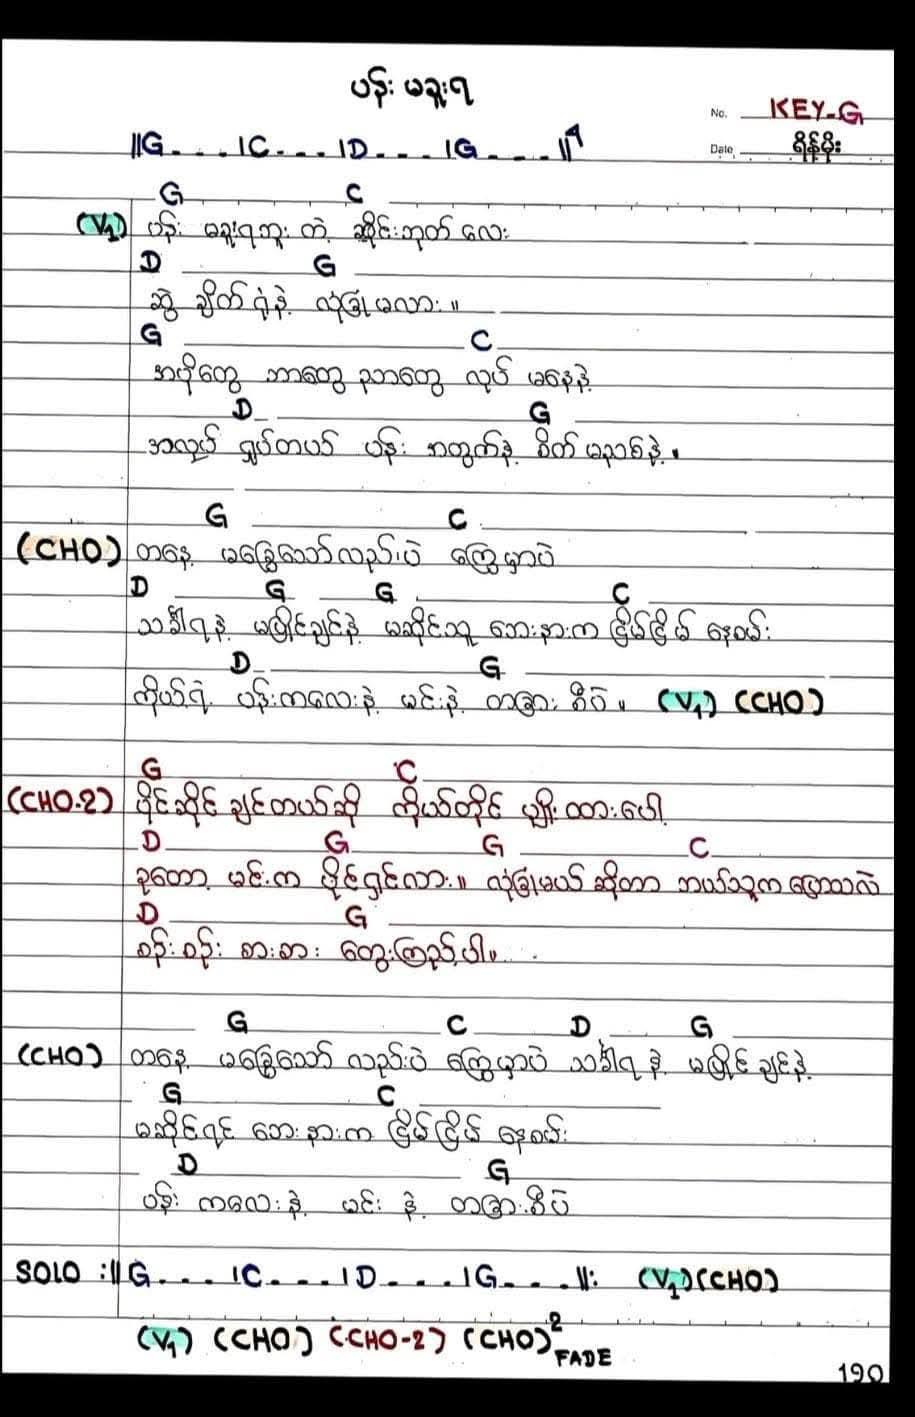 ပန်း မခူးရ
No. KEY-G
||G - - - |C - - - |D - - - |G - - - ||4
Date ရိန်မိုး
G C
(V1) ပန်း မခူးရဘူး တဲ့ ဆိုင်းဘုတ် လေး
D G
ဆွဲ ချိတ် ရုံနဲ့ လုံခြုံ မလား ။
G C
အပိုတွေ ဘာတွေ ညာတွေ လုပ် မနေနဲ့
D G
အလှည့် ရှုပ်တယ် ပန်း အတွက်နဲ့ စိတ် မညစ်နဲ့ ။
G C
(CHO) တနေ့ မခြွေသော်လည်းပဲ ကြွေမှာပဲ
D G G C
သင်္ခါရနဲ့ မပြိုင်ချင်နဲ့ မဆိုင်သူ ဘေးနားက ငြိမ်ငြိမ် နေစမ်း
D G
ကိုယ့်ရဲ့ ပန်းကလေးနဲ့ မင်းနဲ့ တခြား စီပဲ ။ (V1) (CHO)
G C
(CHO.2) ပိုင်ဆိုင် ချင်တယ်ဆို ကိုယ်တိုင် မျိုး ထားပေါ့
D G G C
ခုတော့ မင်းက ပိုင်ရှင်လား ။ လုံခြုံမယ် ဆိုတာ ဘယ်သူက ပြောသလဲ
D G
စဉ်းစဉ်း စားစား တွေးကြည့်ပါ။
G C D G
(CHO) တနေ့ မခြွေသော် လည်းပဲ ကြွေမှာပဲ သင်္ခါရ နဲ့ မပြိုင် ချင်နဲ့
G C
မဆိုင်ရင် ဘေးနားက ငြိမ်ငြိမ် နေစမ်း
D G
ပန်း ကလေးနဲ့ မင်း နဲ့ တခြားစီပဲ
SOLO :||G - - - |C - - - |D - - - |G - - - ||: (V1)(CHO)
(V1) (CHO) (CHO-2) (CHO)2 FADE
190